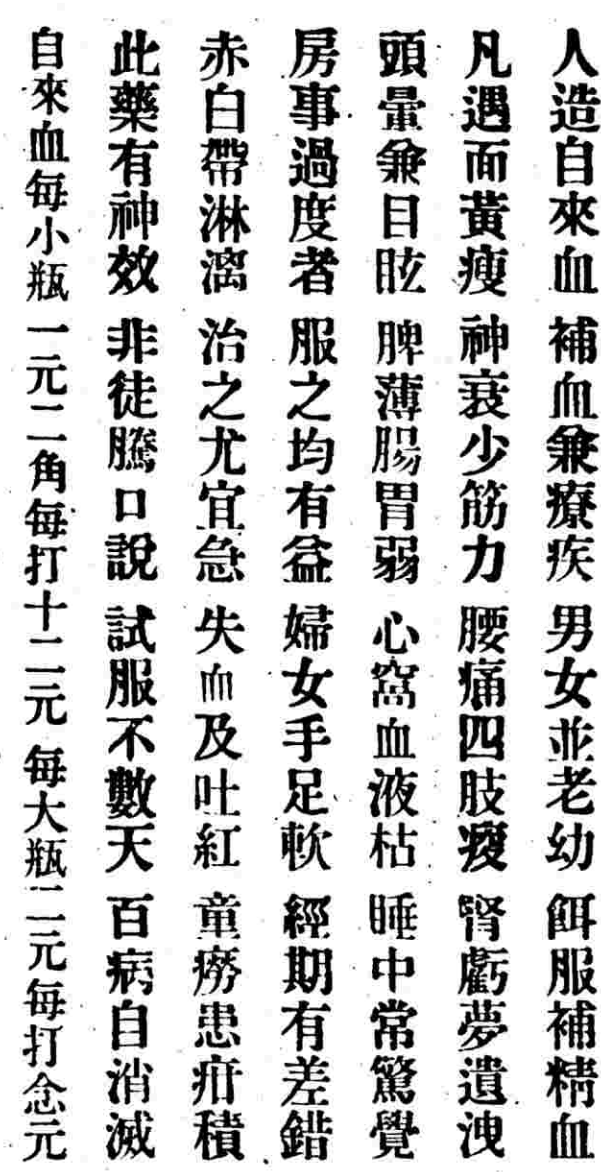 人造自來血 補血兼療疾 男女並老幼 餌服補精血
凡遇面黃瘦 神衰少筋力 腰痛四肢痠 腎虧夢遺洩
頭暈兼目眩 脾薄腸胃弱 心窩血液枯 睡中常驚覺
房事過度者 服之均有益 婦女手足軟 經期有差錯
赤白帶淋漓 治之尤宜急 失血及吐紅 童癆患疳積
此藥有神效 非徒騰口說 試服不數天 百病自消滅
自來血每小瓶 一元二角每打十二元 每大瓶二元每打念元